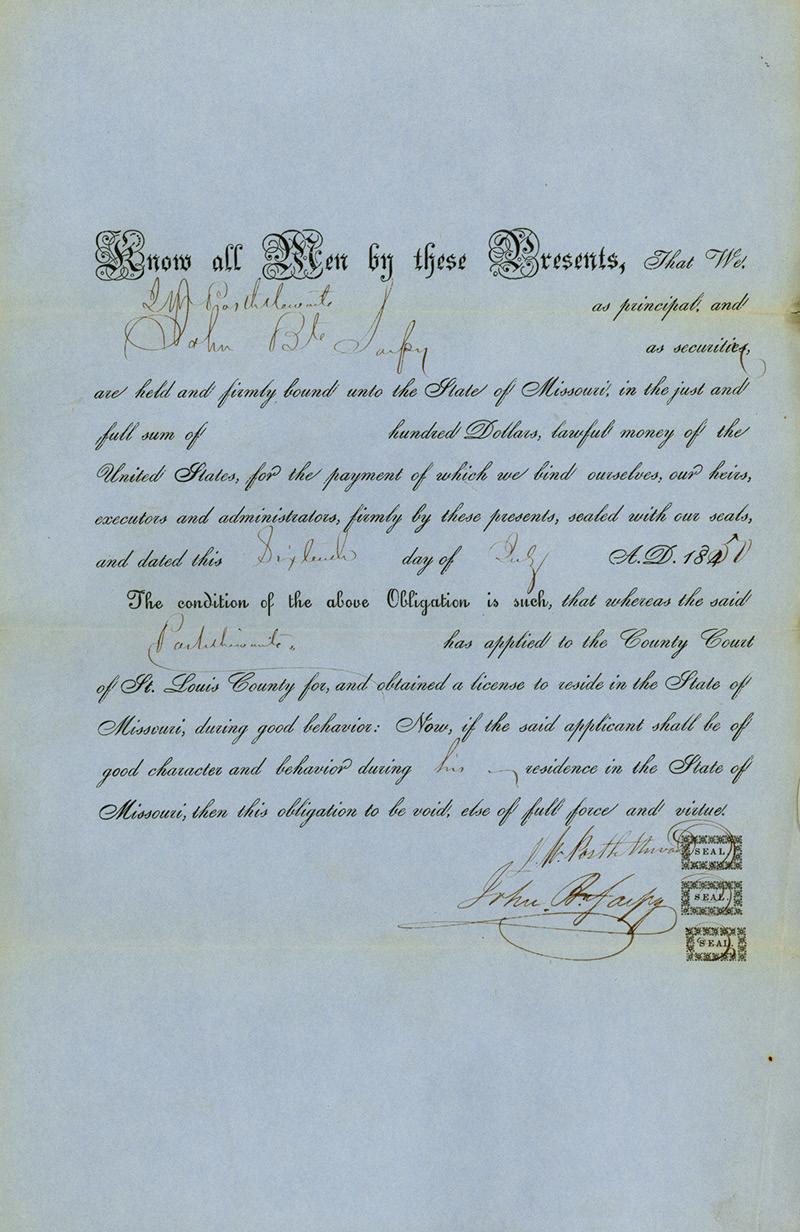 Know all Men by these Presents, That We,
as principal, and
John Bte Sarpy as securities,
are held and firmly bound unto the State of Missouri, in the just and
full sum of hundred Dollars, lawful money of the
United States, for the payment of which we bind ourselves, our heirs,
executors and administrators, firmly by these presents, sealed with our seals,
and dated this Sixteenth day of July A.D. 1850
The condition of the above Obligation is such, that whereas the said
has applied to the County Court
of St. Louis County for, and obtained a license to reside in the State of
Missouri, during good behavior: Now, if the said applicant shall be of
good character and behavior during his residence in the State of
Missouri, then this obligation to be void, else of full force and virtue.
SEAL
John Bte Sarpy SEAL.
SEAL